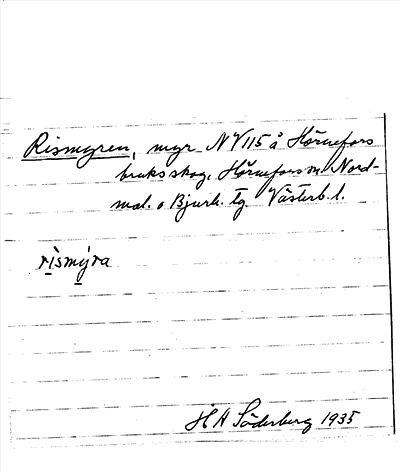 Rismyren, myr NV115 å Hörnefors
bruksskog, Hörnefors sn. Nord-
mal. o Bjurh. tg Västerb. l.
rismýra
H A Söderberg 1935